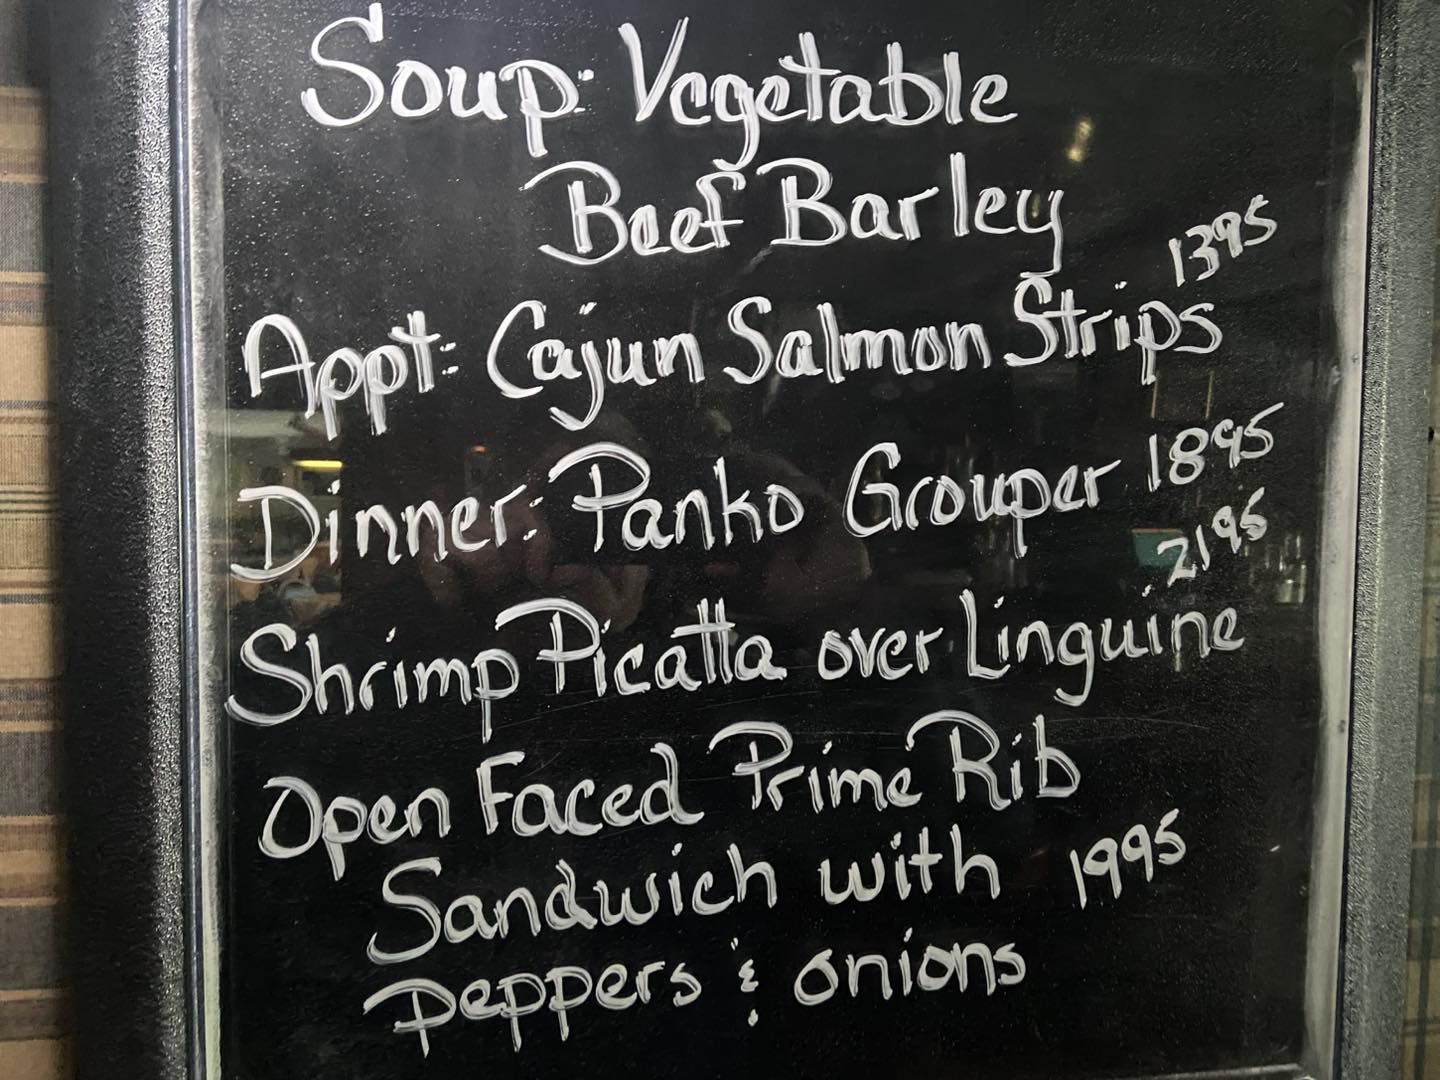 Soup: Vegetable
Beef Barley
Appt: Cajun Salmon Strips 1395
Dinner: Panko Grouper 1895
Shrimp Picatta over Linguine 2195
Open Faced Prime Rib
Sandwich with 1995
peppers & onions